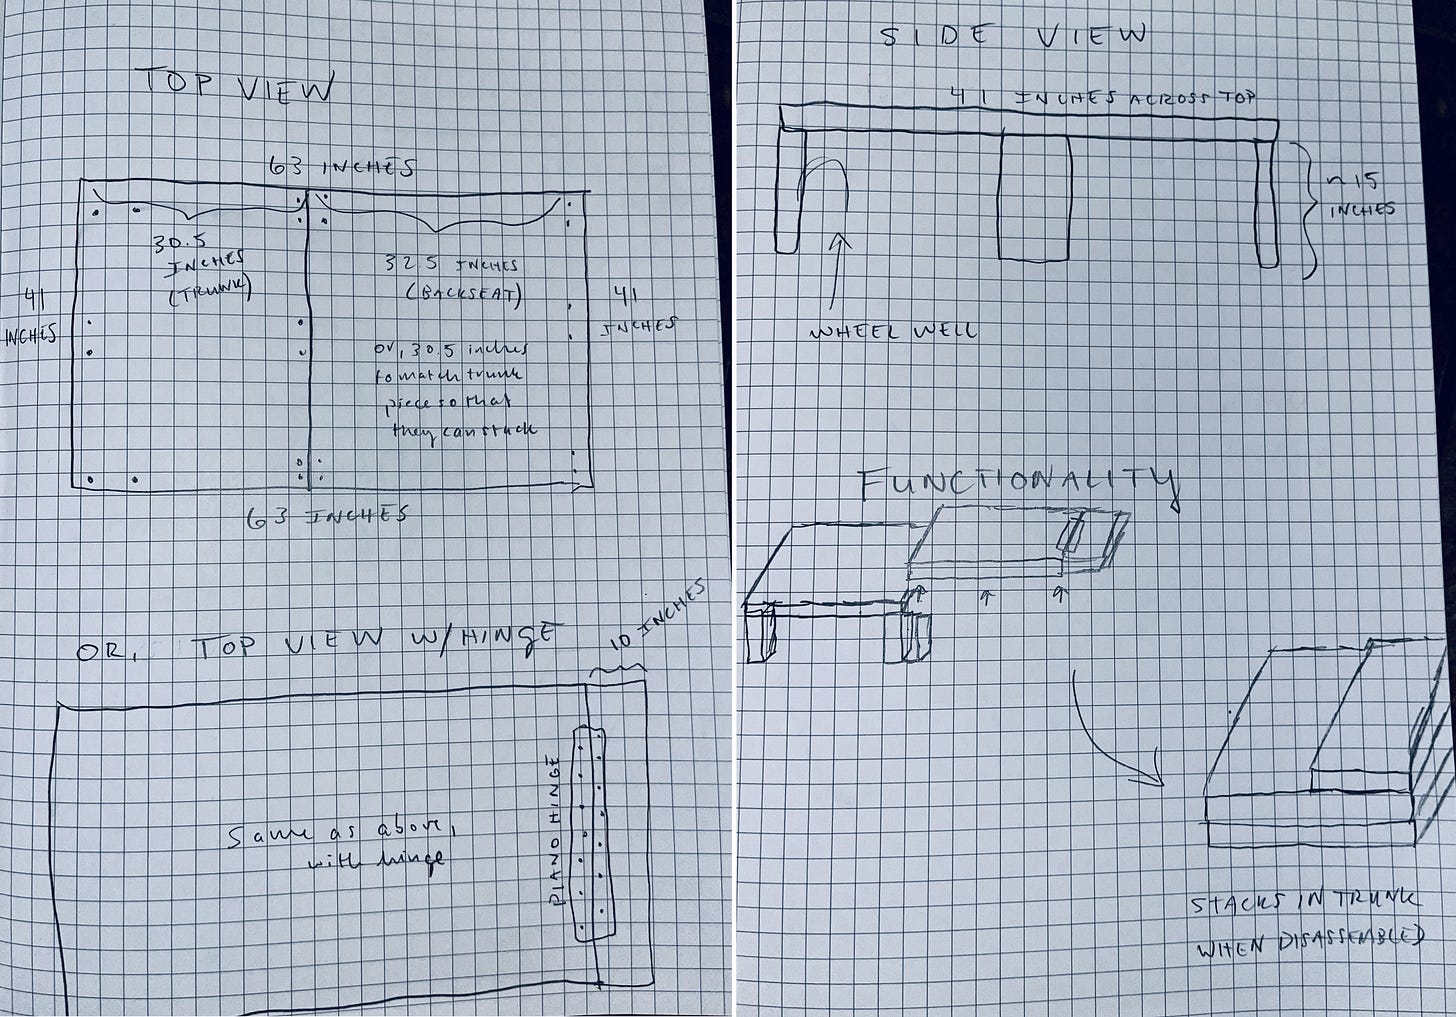 TOP VIEW
63 INCHES
30.5
INCHES
(TRUNK)
32.5 INCHES
(BACKSEAT)
41
INCHES
41
INCHES
or, 30.5 inches
to match trunk
piece so that
they can stack
63 INCHES
OR, TOP VIEW W/HINGE
10 INCHES
PIANO HINGE
Same as above,
with hinge
SIDE VIEW
41 INCHES ACROSS TOP
~15
INCHES
WHEEL WELL
FUNCTIONALITY
STACKS IN TRUNK
WHEN DISASSEMBLED